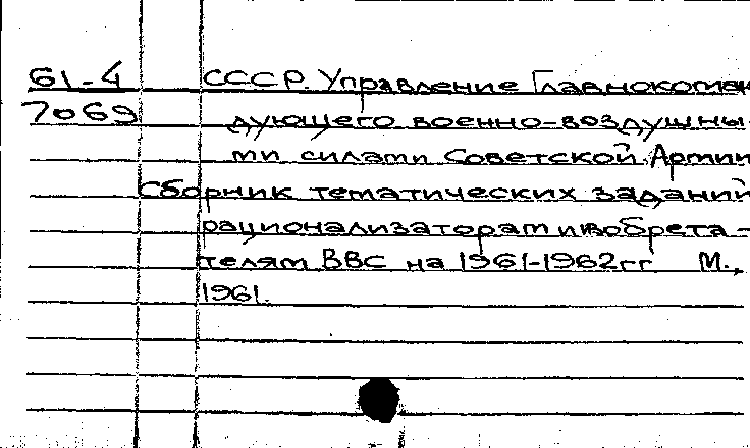 61-4 СССР. Управление Главнокоман
7069 дующего военно-воздушны-
ми силами Советской Армии
Сборник тематических заданий
рационализаторам изобрета-
телям ВВС на 1961-1962гг М.,
1961.